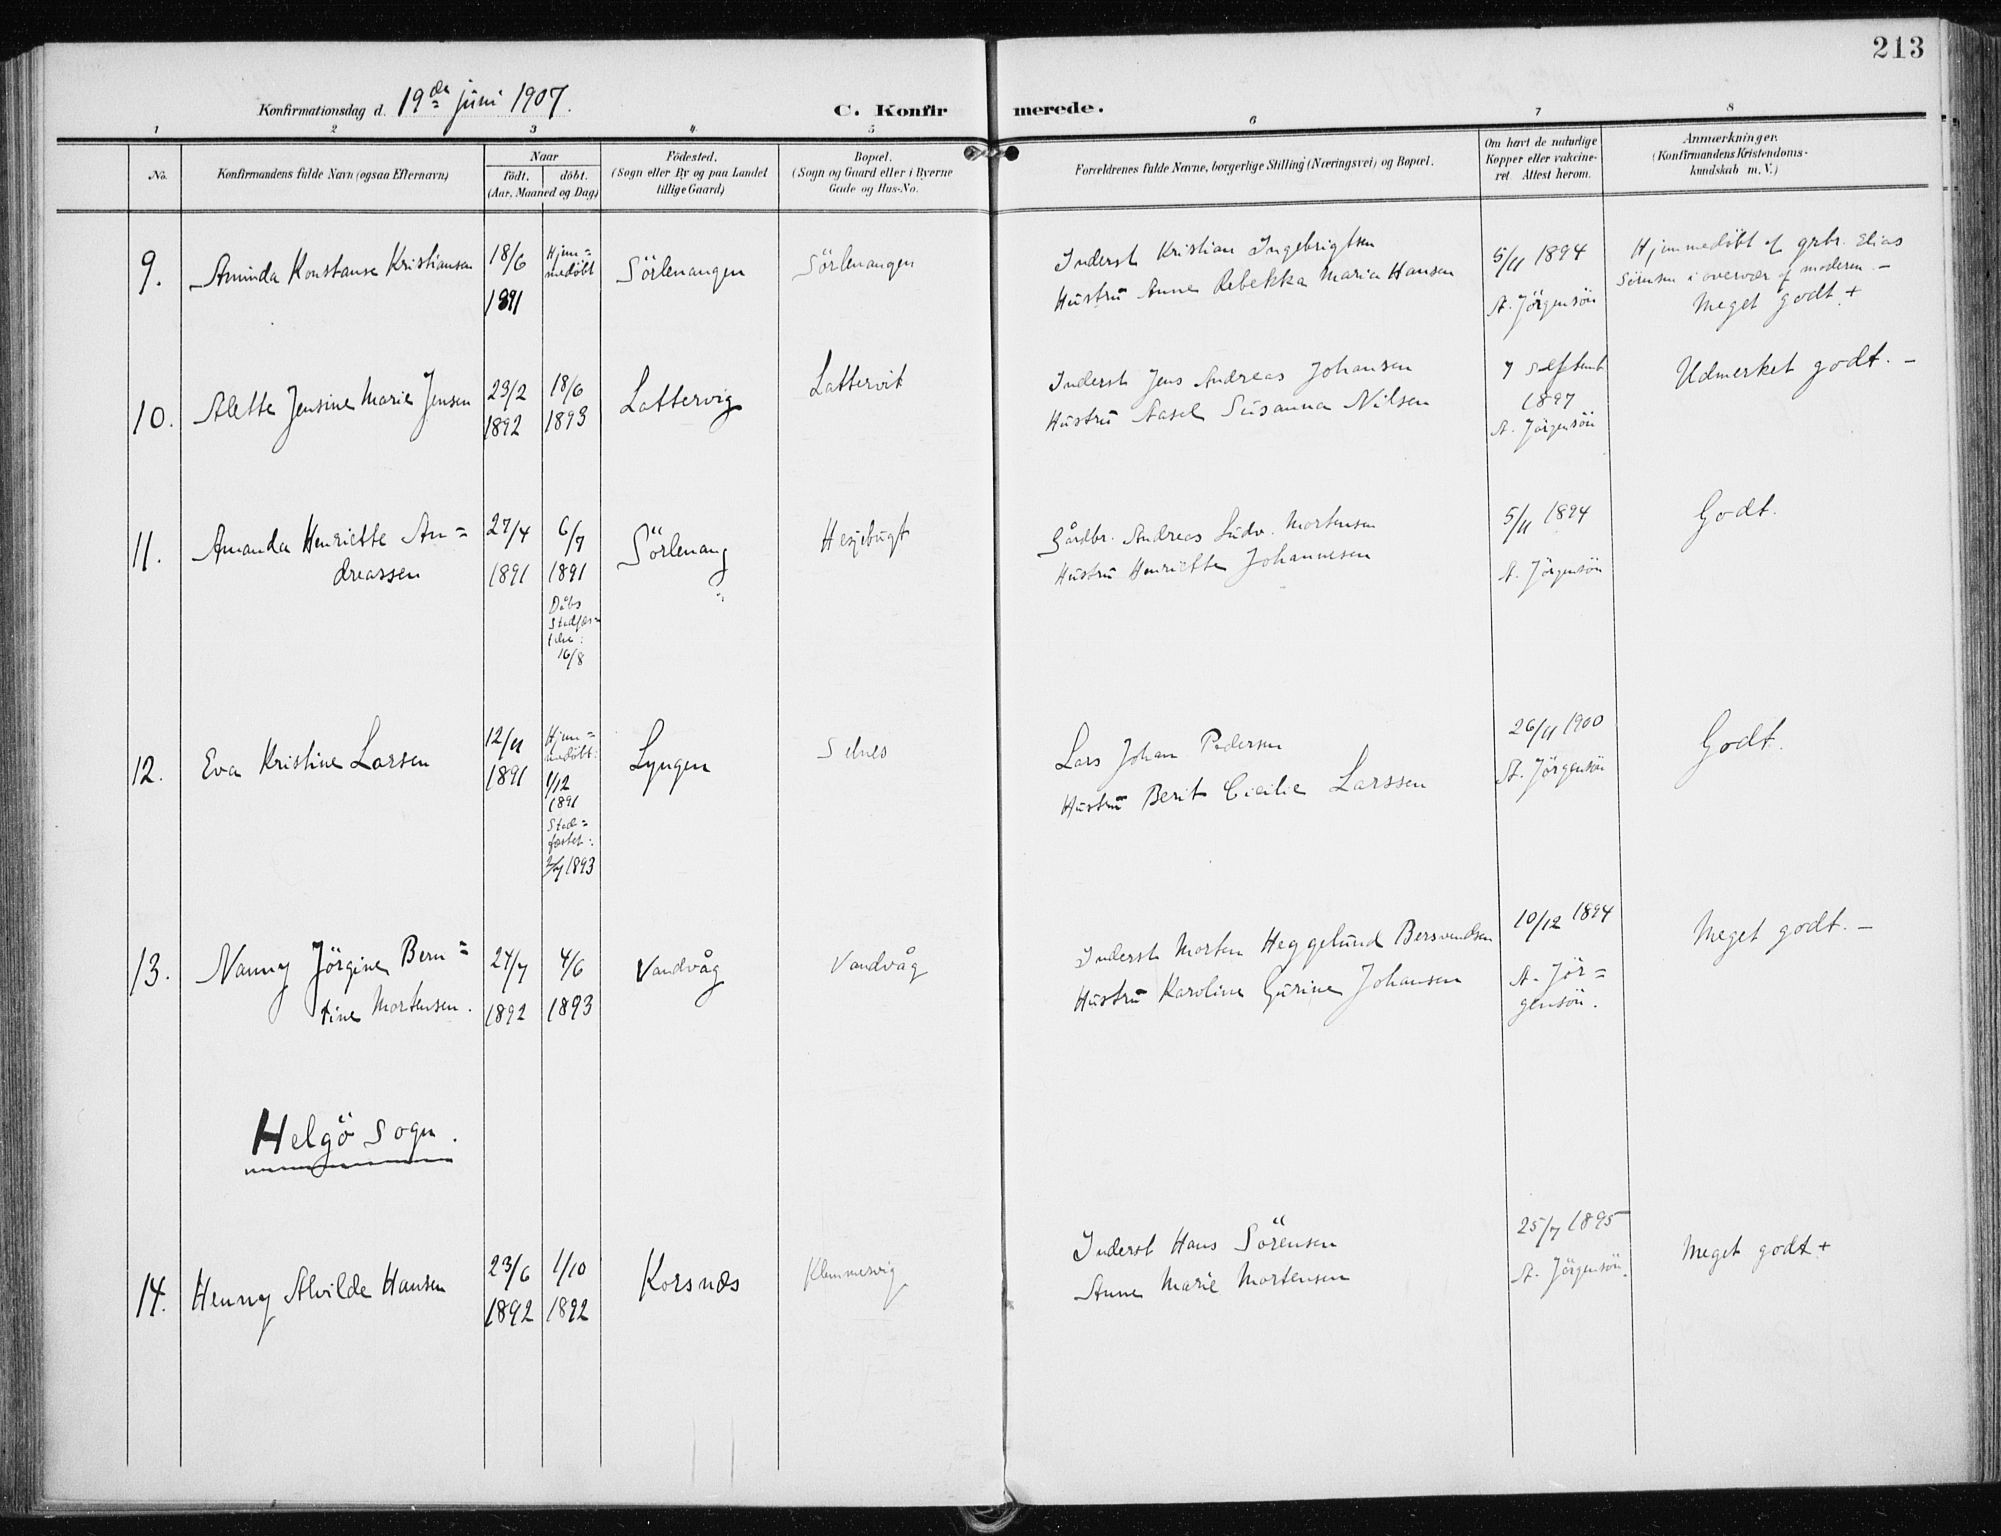 213
Konfirmationsdag d. 19de juni 1907.
C. Konfirmerede.
1 2 3 4 5 6 7 8
No.
Konfirmandens fulde Navn (ogsaa Efternavn)
Naar
født. døbt.
(Aar, Maaned og Dag)
Fødested.
(Sogn eller By og paa Landet
tillige Gaard)
Bopæl.
(Sogn og Gaard eller i Byerne
Gade og Hus-No.
Forældrenes fulde Navne, borgerlige Stilling (Næringsvei) og Bopæl.
Om havt de naturlige
Kopper eller vakcine-
ret Attest herom.
Anmærkninger.
(Konfirmandens Kristendoms-
kundskab m. V.)
9.
Aminda Konstanse Kristiansen
18/6
1891
Hjem=
medöbt
Sörlenangen
Sörlenangen
Inderst Kristian Ingebrigtsen
Hustru Anne Rebekka Maria Hansen
5/11 1894
A. Jörgensön
Hjemmedöbt af grbr. Elias
Sörensen i overvær af moderen. –
Meget godt. +
10.
Alette Jensine Marie Jensen
23/2
1892
18/6
1893
Lattervig
Lattervik
Inderst Jens Andreas Johansen
Hustru Aasel Susanna Nilsen
7 septemb
1897
A. Jörgensön
Udmerket godt. –
11.
Amanda Henriette An=
dreassen
27/4
1891
6/7
1891
Dåbs
Stadfæs=
telse:
16/8
Sörlenang
Hesjebugt
Gårdbr. Andreas Ludv. Mortensen
Hustru Henriette Johannesen
5/11 1894
A. Jörgensön
Godt.
12.
Eva Kristine Larsen
12/11
1891
Hjem=
medöbt:
1/12
1891
Stad=
fæstet:
2/7 1893
Lyngen
Selnes
Lars Johan Pedersen
Hustru Berit Cicilie Larssen
26/11 1900
A. Jörgensön
Godt.
13.
Nanny Jörgine Bern=
tine Mortensen.
24/7
1892
4/6
1893
Vandvåg
Vandvåg
Inderst Morten Heggelund Bersvendsen
Hustru Karoline Gurine Johansen
10/12 1894
A. Jör=
gensön.
Meget godt. –
Helgö Sogn.
14.
Henny Alvilde Hansen
23/6
1892
1/10
1892
Korsnæs
Klemmesvig
Inderst Hans Sörensen
Anne Marie Mortensen
25/7 1895
A. Jörgensön.
Meget godt +